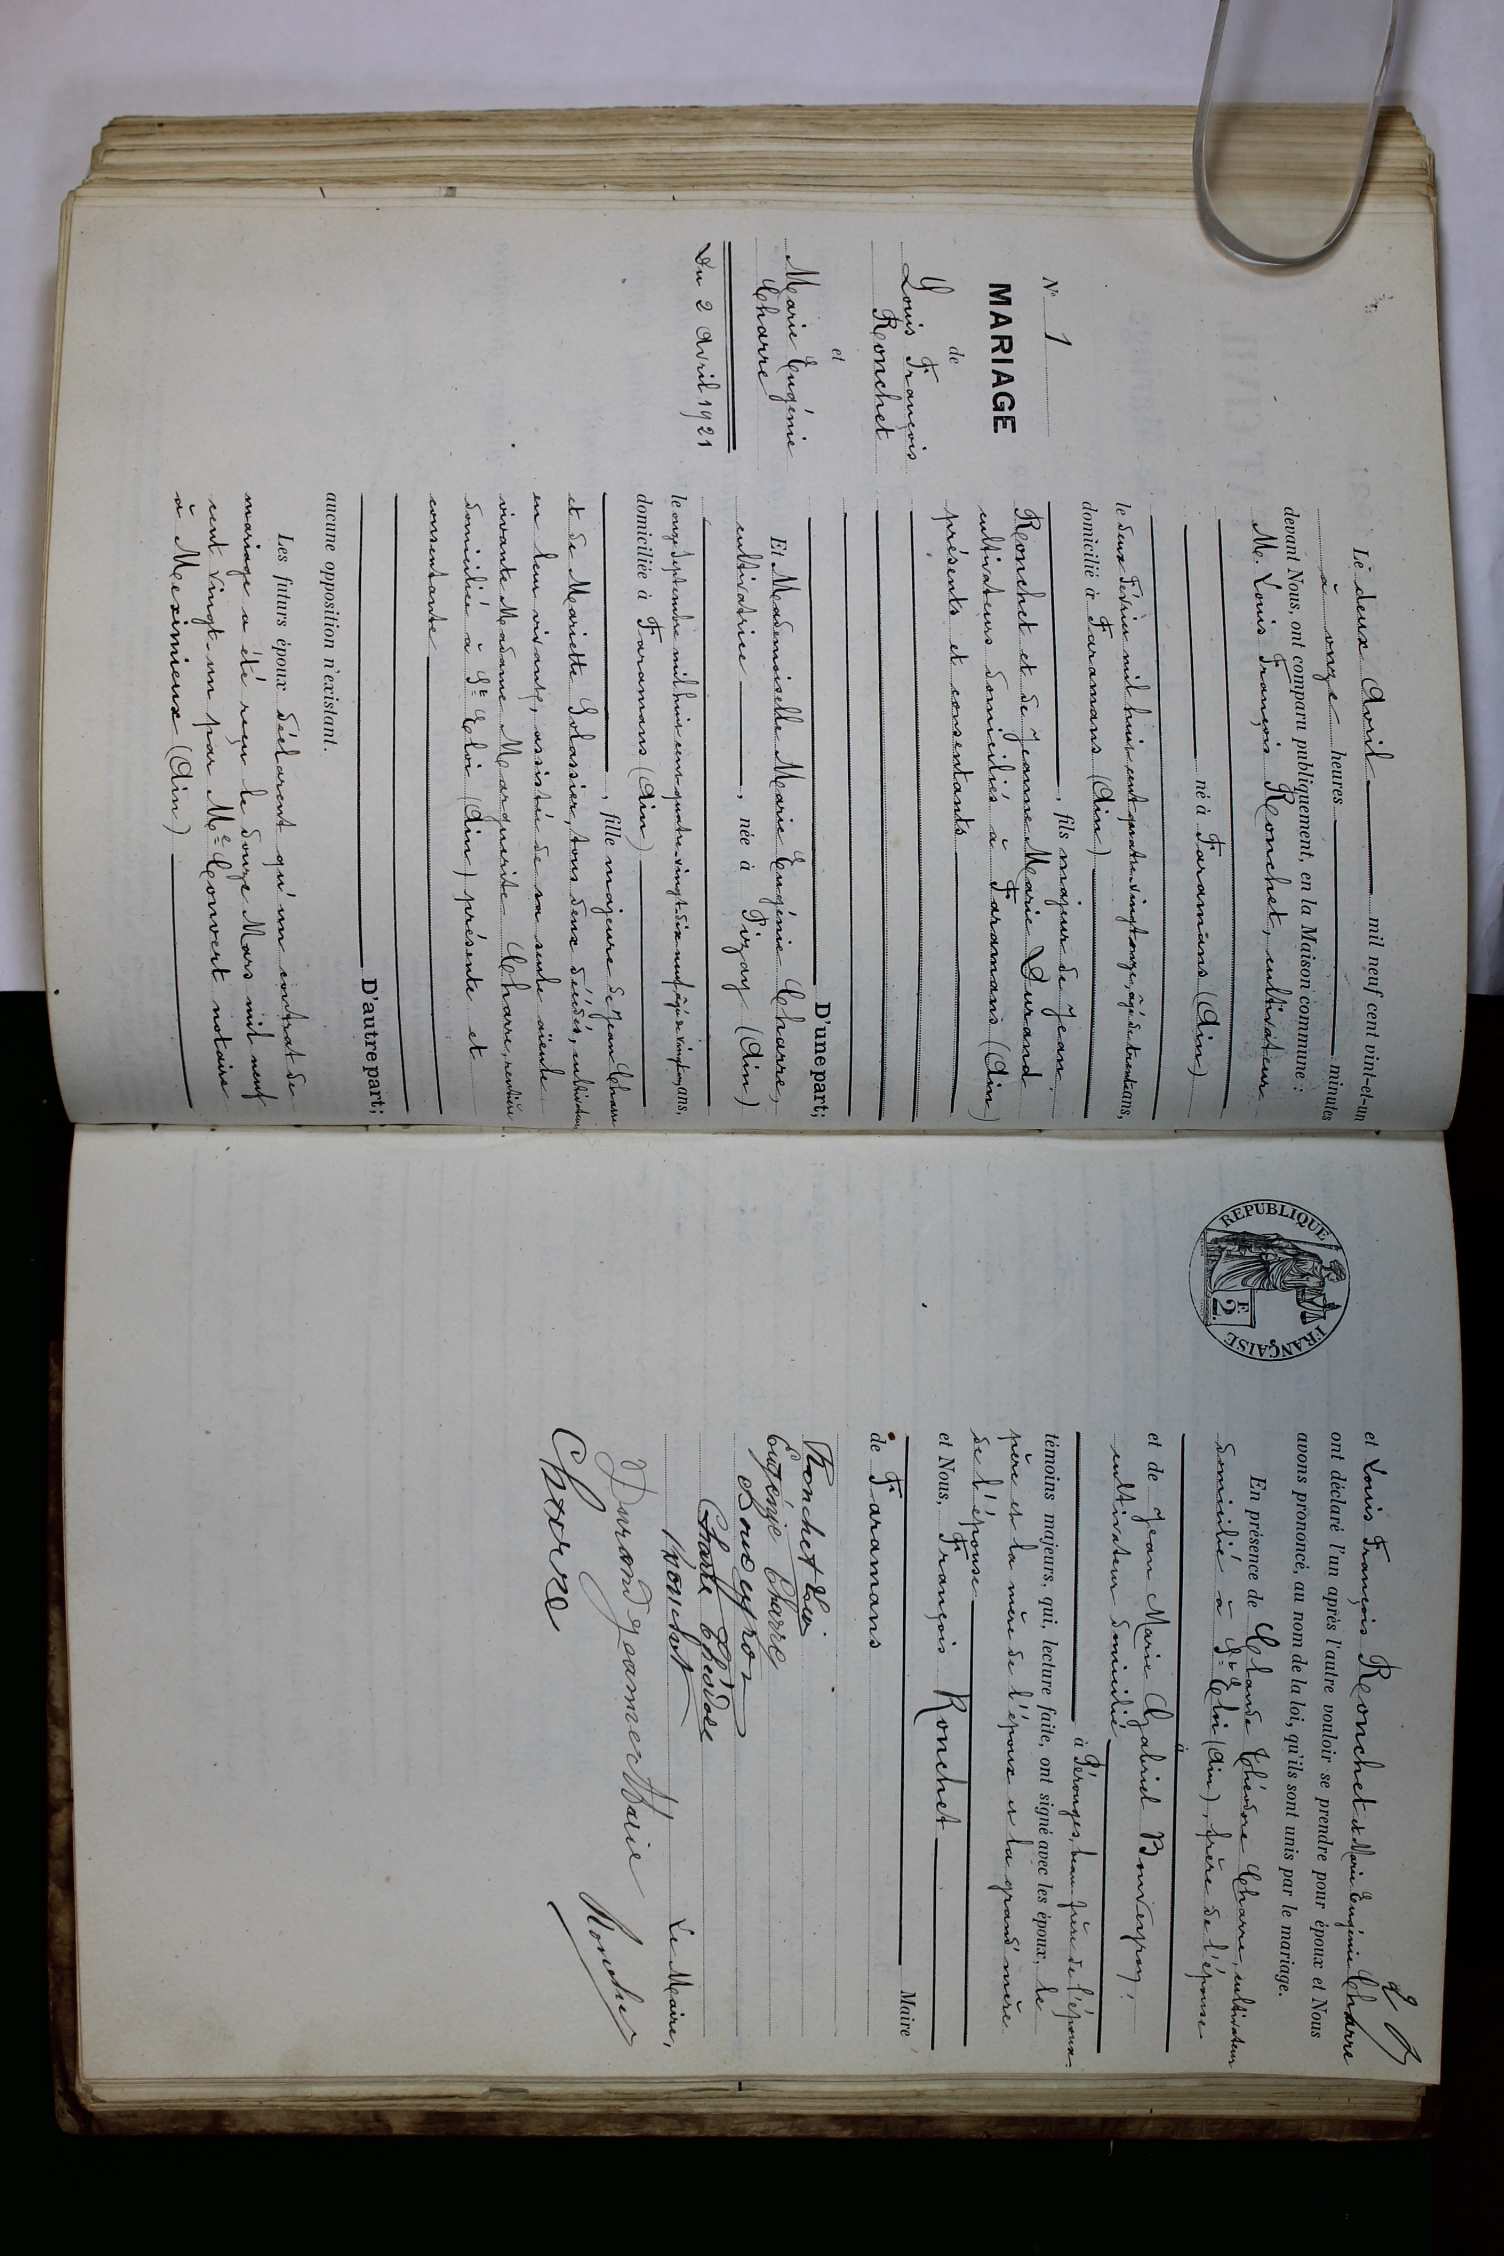 N° 1
MARIAGE
de
Louis François
Ronchet
et
Marie Eugénie
Charre
Du 2 Avril 1921
Le deux Avril mil neuf cent vint-et-un
à onze heures minutes
devant Nous, ont comparu publiquement, en la Maison commune :
M. Louis François Ronchet, cultivateur
né à Faramans (Ain)
le deux Février mil huit cent quatre vingt onze, âgé de trente ans,
domicilié à Faramans (Ain)
, fils majeur de Jean
Ronchet et de Jeanne Marie Durand
cultivateurs domiciliés à Faramans (Ain)
présents et consentants
D'une part;
Et Mademoiselle Marie Eugénie Charre,
cultivatrice , née à Pizay (Ain)
le onze Septembre mil huit cent quatre vingt dix neuf âgée de vingt un ans,
domiciliée à Faramans (Ain)
, fille majeure de Jean Charre
et de Mariette Golassier, tous deux décédés, cultivateurs
en leur vivant, assistée de sa seule aïeule
vivante Madame Marguerite Charre, rentière
domiciliée à Ste Eloi (Ain) présente et
consentante
D'autre part;
aucune opposition n'existant.
Les futurs époux déclarent qu'un contrat de
mariage a été reçu le douze Mars mil neuf
cent vingt-un par Me Convert notaire
à Meximieux (Ain)
2
REPUBLIQUE FRANÇAISE
2 F.
et Louis François Ronchet et Marie Eugénie Charre
ont déclaré l'un après l'autre vouloir se prendre pour époux et Nous
avons prononcé, au nom de la loi, qu'ils sont unis par le mariage.
En présence de Claude Théodore Charre, cultivateur
domicilié à St Eloi (Ain), frère de l'épouse
à
et de Jean Marie Gabriel Bouveyron
cultivateur domicilié
à Pérouges, beau-frère de l'époux
témoins majeurs, qui, lecture faite, ont signé avec les époux, le
père et la mère de l'époux et la grand'mère
de l'épouse
et Nous, François Ronchet
Maire
de Faramans
Ronchet
Eugénie Charre
Bouveyron
Charre Théodore
Ronchet
Durand Jeanne Marie
Charre
Le Maire,
Ronchet